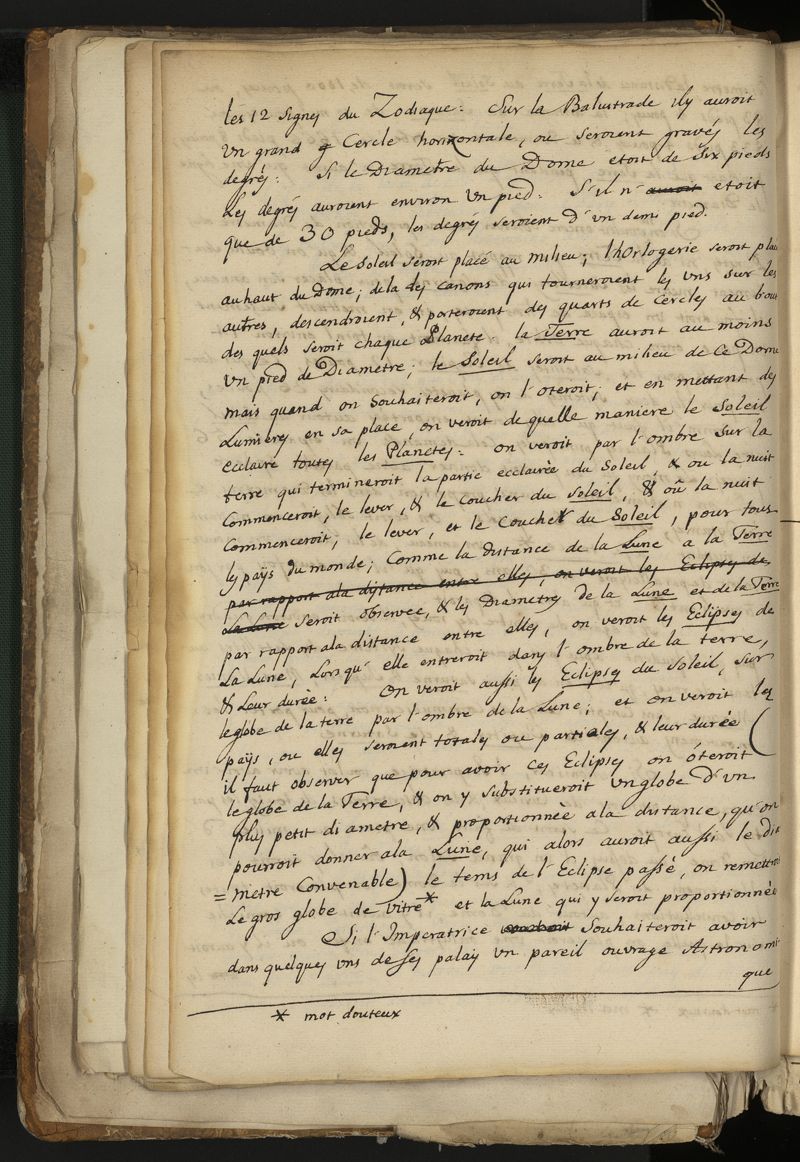 les 12 Signes du Zodiaque. Sur la Balustrade il y auroit
un grand Cercle horizontale, ou seroient gravés les
degrés. Si le Diametre du Dome etoit de Six pieds
Les degrés auroient environ un pied. S'il n' auroit etoit
que de 30 pieds, les degrés seroient d'un demi pied.
Le Soleil seroit placé au milieu; l'horlogerie seroit
au haut du Dome; de la des canons qui tourneroient les uns sur les
autres, descendroient, & porteroient des quarts de Cercles au bout
des quels seroit chaque Planete. la Terre auroit au moins
un pied de Diametre; le Soleil seroit au milieu de ce Dome
mais quand on souhaiteroit, on l'oteroit; et en mettant des
Lumieres en sa place, on veroit de quelle maniere le Soleil
ecclaire toutes les Planetes. on veroit par l'ombre sur la
terre qui termineroit la partie ecclairée du Soleil, & ou la nuit
Commenceroit, le lever, & le coucher du Soleil, & oû la nuit
Commenceroit; le lever, et le coucher du Soleil, pour tous
les païs du monde; Comme la distance de la Lune a la Terre
par rapport a la distance entre elles, on veroit les Eclipses de
la Lune seroit observee, & les Diametres de la Lune et de la Terre
par rapport a la distance entre elles, on veroit les Eclipses de
La Lune, Lorsqu' elle entreroit dans l'ombre de la terre,
& Leur durée. On veroit aussi les Eclipses du Soleil, sur
le globe de la terre par l'ombre de la Lune; et on veroit les
païs, ou elles seroient totales ou partiales, & leur durée (
il faut observer que pour avoir ces Eclipses on ôteroit
le globe de la Terre, & on y substitueroit un globe d'un
plus petit diametre, & proportionnée a la distance, qu'on
pourroit donner a la Lune, qui alors auroit aussi le dia
=metre Convenable) le tems de l'Eclipse passé, on remettroit
Le gros globe de vitre* et la Lune qui y seroit proportionnée
Si l'Imperatrice voudroit Souhaiteroit avoir
dans quelques uns de ses palais un pareil ouvrage Astronomi
que
* mot douteux